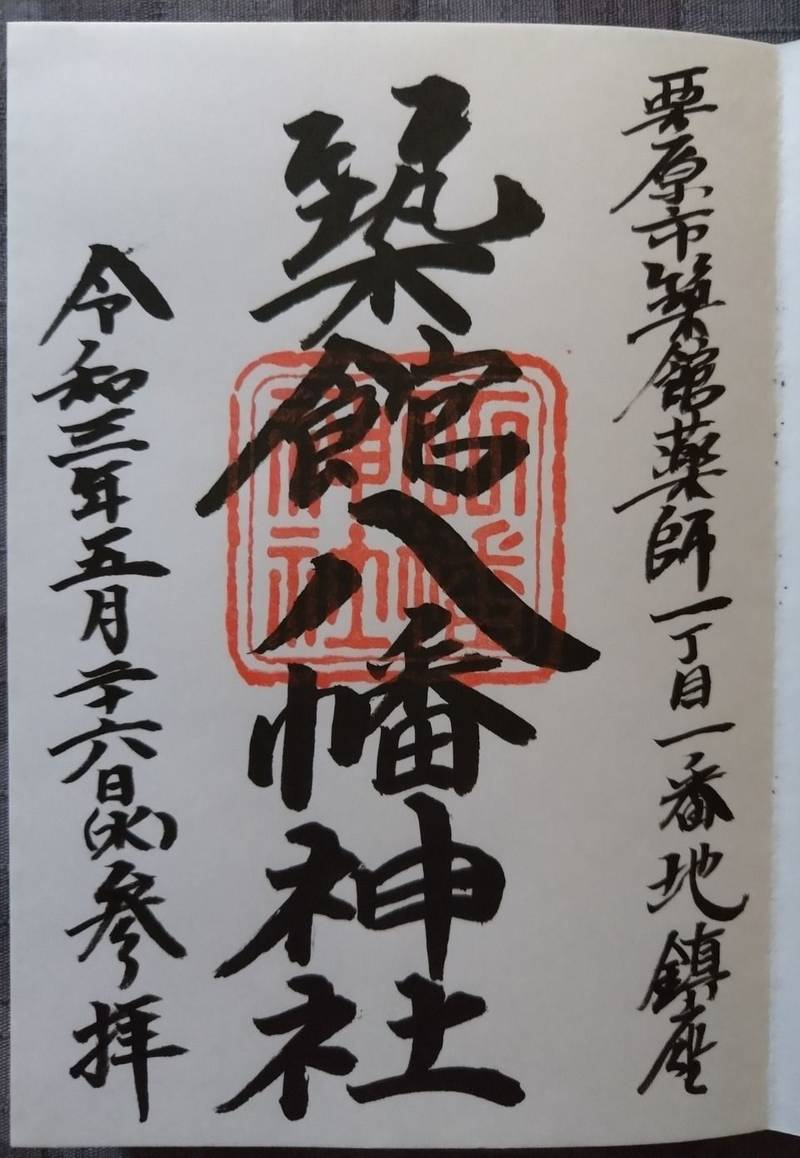 栗原市築館薬師一丁目一番地鎮座
築館八幡神社
令和三年五月二十六日(水)参拝
神社